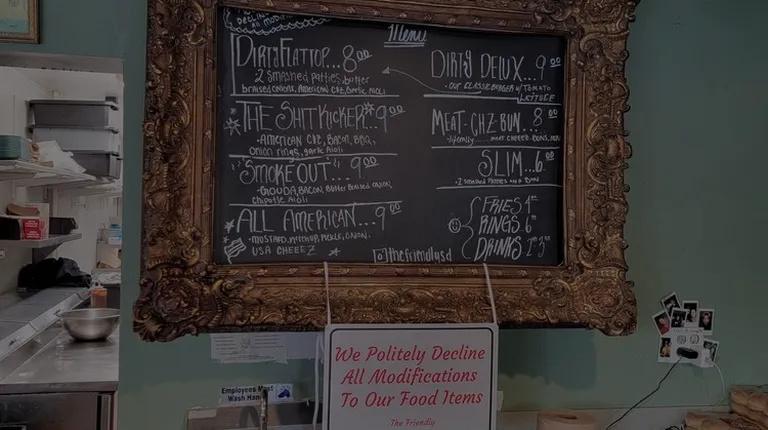 Menu
DirtyFlattop...8.00
2 smashed patties, butter
braised onions, American CHZ, Garlic Aioli
THE SHITKICKER...9.00
-AMERICAN CHZ, BACON, BBQ,
onion rings, garlic Aioli
"SMOKEOUT"...9.00
-GOUDA, BACON, Butter Braised onion,
chipotle Aioli
ALL AMERICAN...9.00
-MUSTARD, Ketchup, Pickle, Onion,
USA CHEEEZ
DIRTY DELUX...9.00
-OUR CLASSIC BURGER w/ TOMATO
LETTUCE
MEAT-CHZ-BUN...8.00
MEAT CHEEZ, BUNS,
SLIM...6.00
-2 SMASHED PATTIES AND BUN
FRIES 4
RINGS 6
DRINKS
@thefriendlysd
We Politely Decline
All Modifications
To Our Food Items
The Friendly
Employees Must
Wash